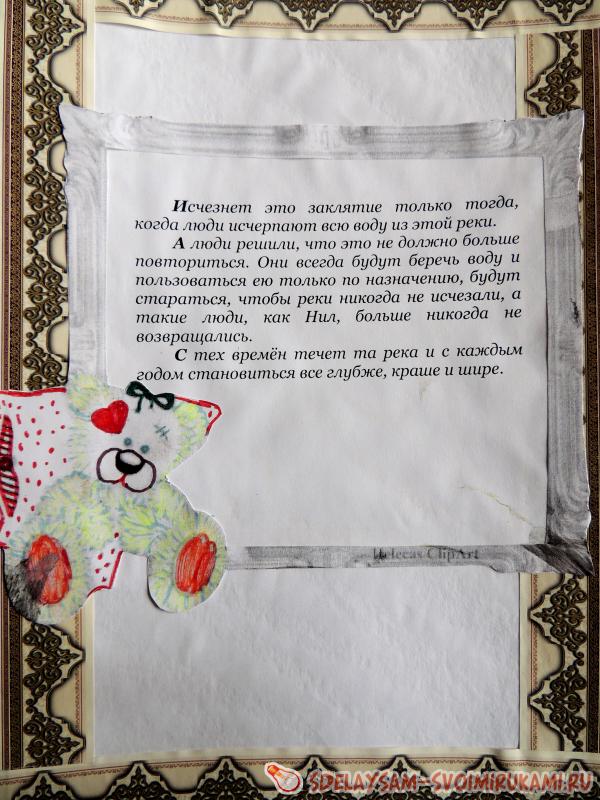 Исчезнет это заклятие только тогда,
когда люди исчерпают всю воду из этой реки.
А люди решили, что это не должно больше
повториться. Они всегда будут беречь воду и
пользоваться ею только по назначению, будут
стараться, чтобы реки никогда не исчезали, а
такие люди, как Нил, больше никогда не
возвращались.
С тех времён течет та река и с каждым
годом становиться все глубже, краше и шире.
Helecas ClipArt
SDELAYSAM-SVOIMIRUKAMI.RU